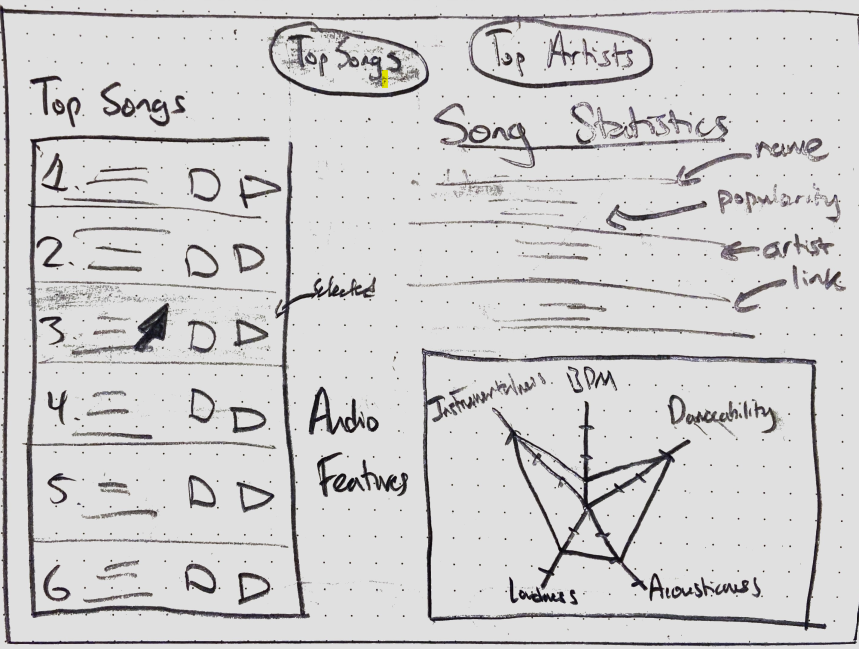 Top Songs
Top Artists
Top Songs
Song Statistics
name
popularity
artist
link
1.
2.
selected
3
4.
5.
6
Audio
Features
Instrumentalness
BPM
Danceability
Loudness
Acousticness